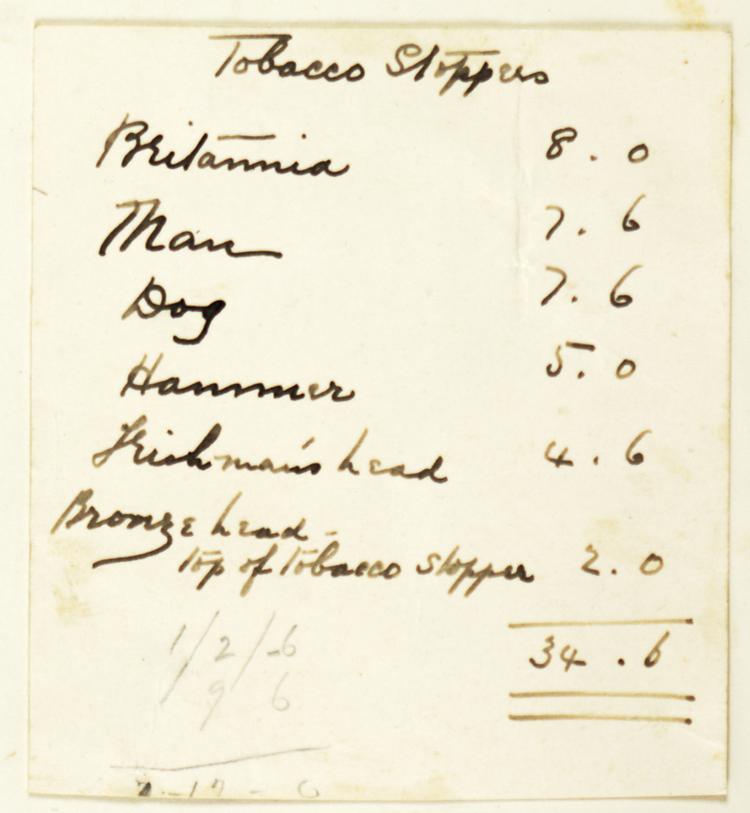 Tobacco Stoppers
Britannia 8.0
Man 7.6
Dog 7.6
Hammer 5.0
Irishman's head 4.6
Bronze head -
top of Tobacco Stopper 2.0
34.6
1/2/-6
9 6